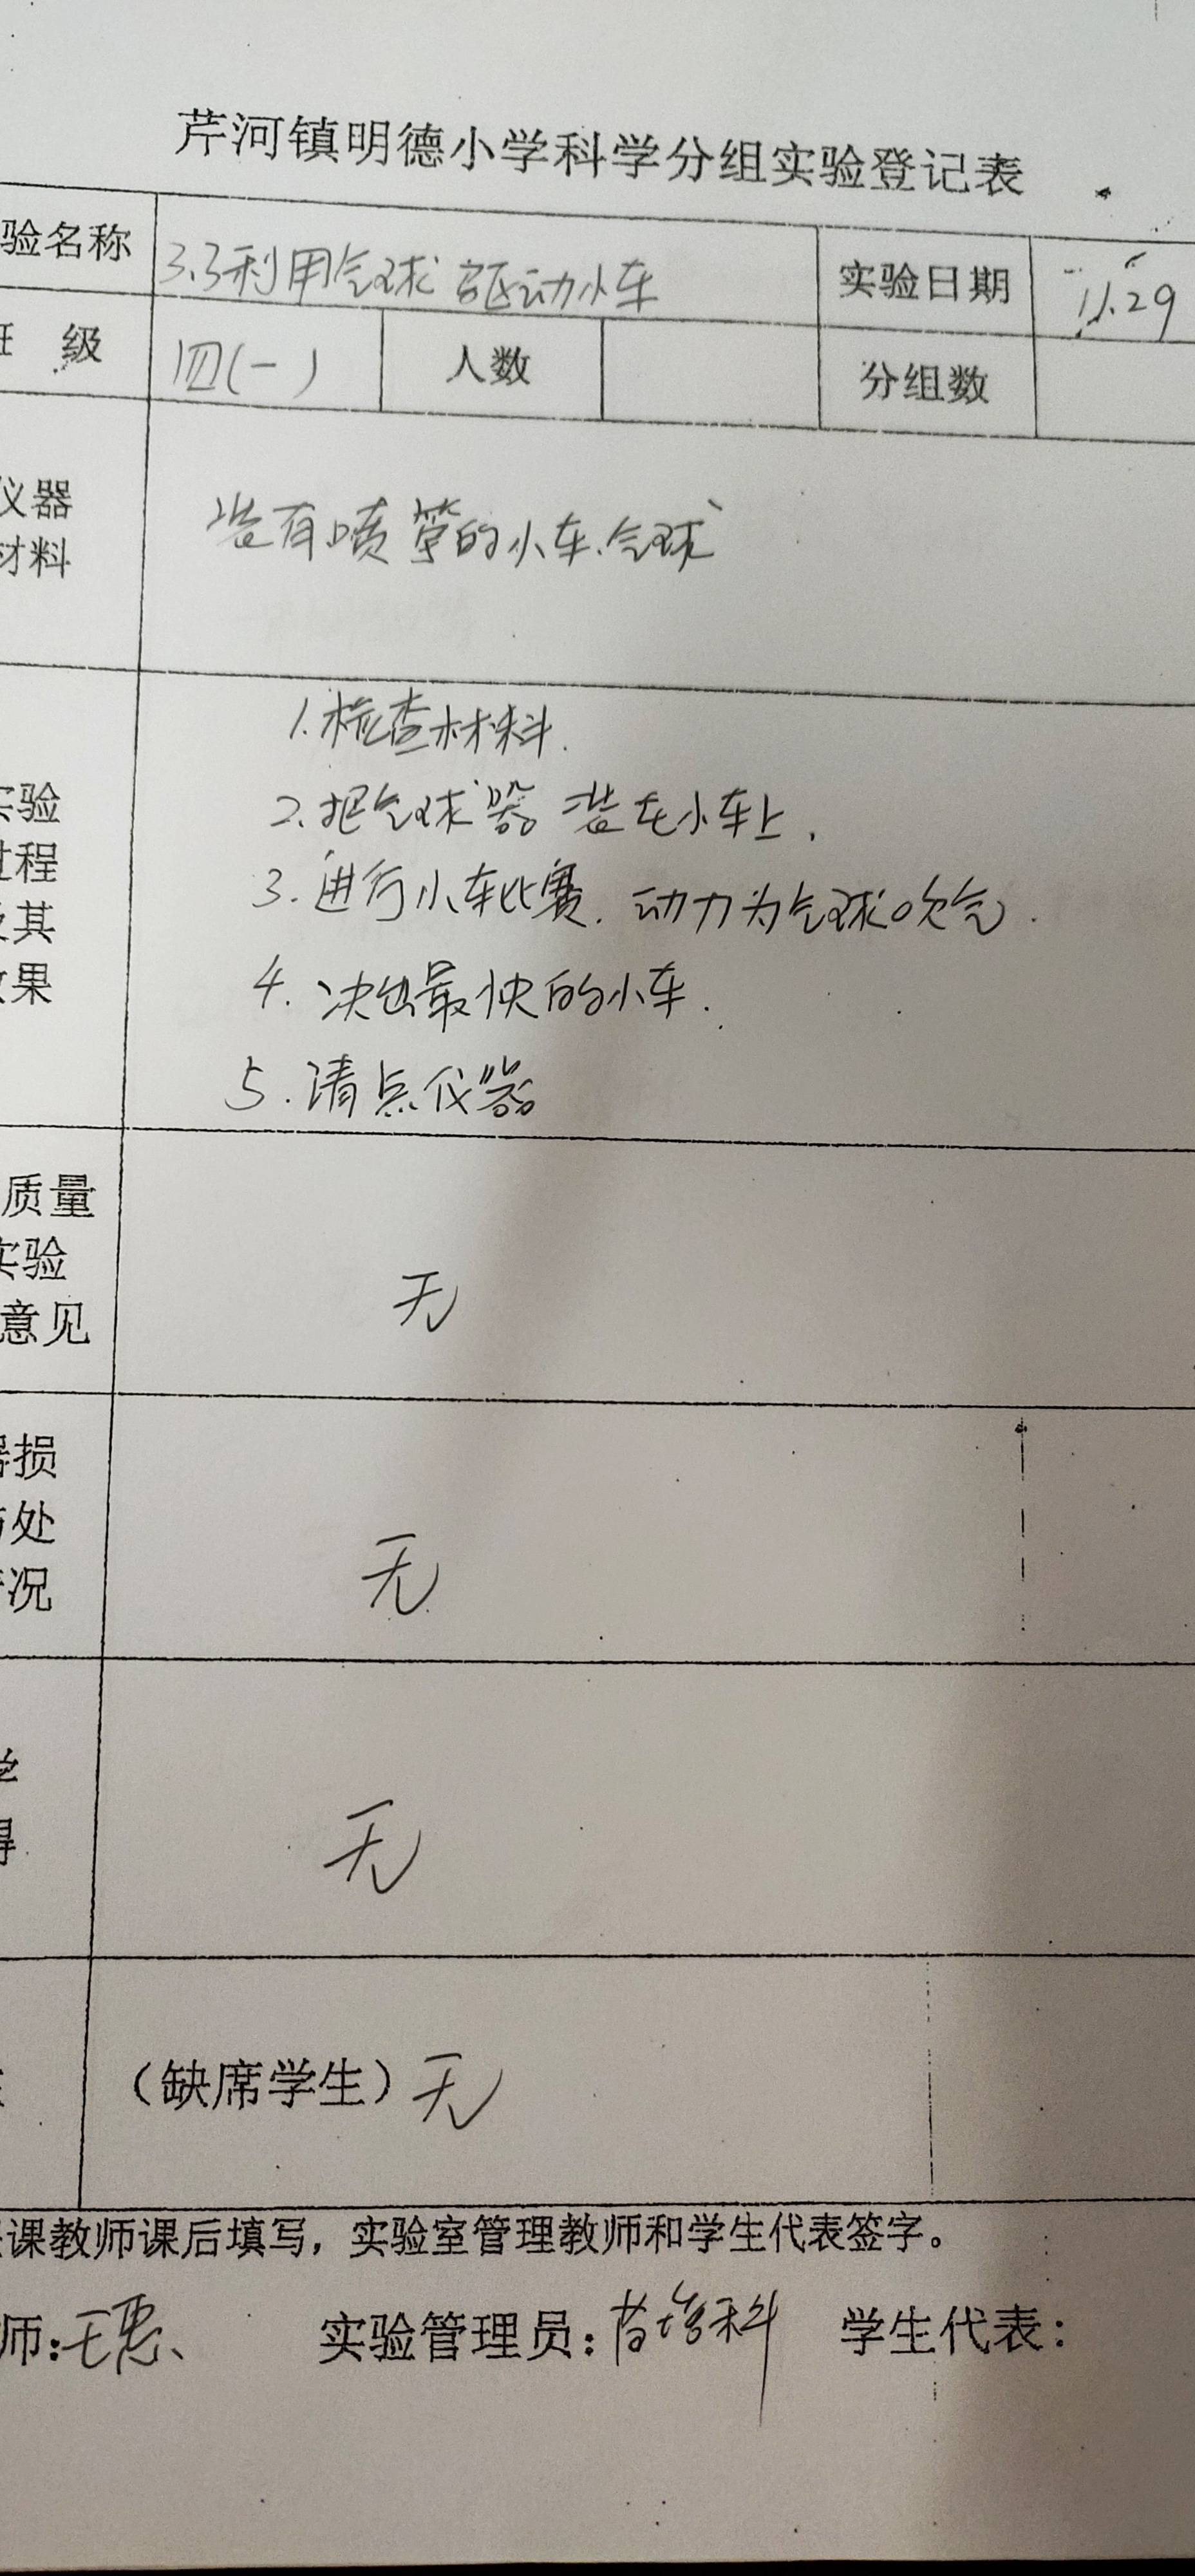 芹河镇明德小学科学分组实验登记表
验名称 3.3利用气球驱动小车 实验日期 11.29
级 四(一) 人数 分组数
仪器
材料
装有喷管的小车.气球
实验
过程
及其
效果
1.检查材料.
2.把气球器装在小车上.
3.进行小车比赛.动力为气球吹气.
4.决出最快的小车.
5.清点仪器
质量
实验
意见
无
损
处
况
无
学
得
无
（缺席学生）无
课教师课后填写，实验室管理教师和学生代表签字。
师: 实验管理员: 学生代表: